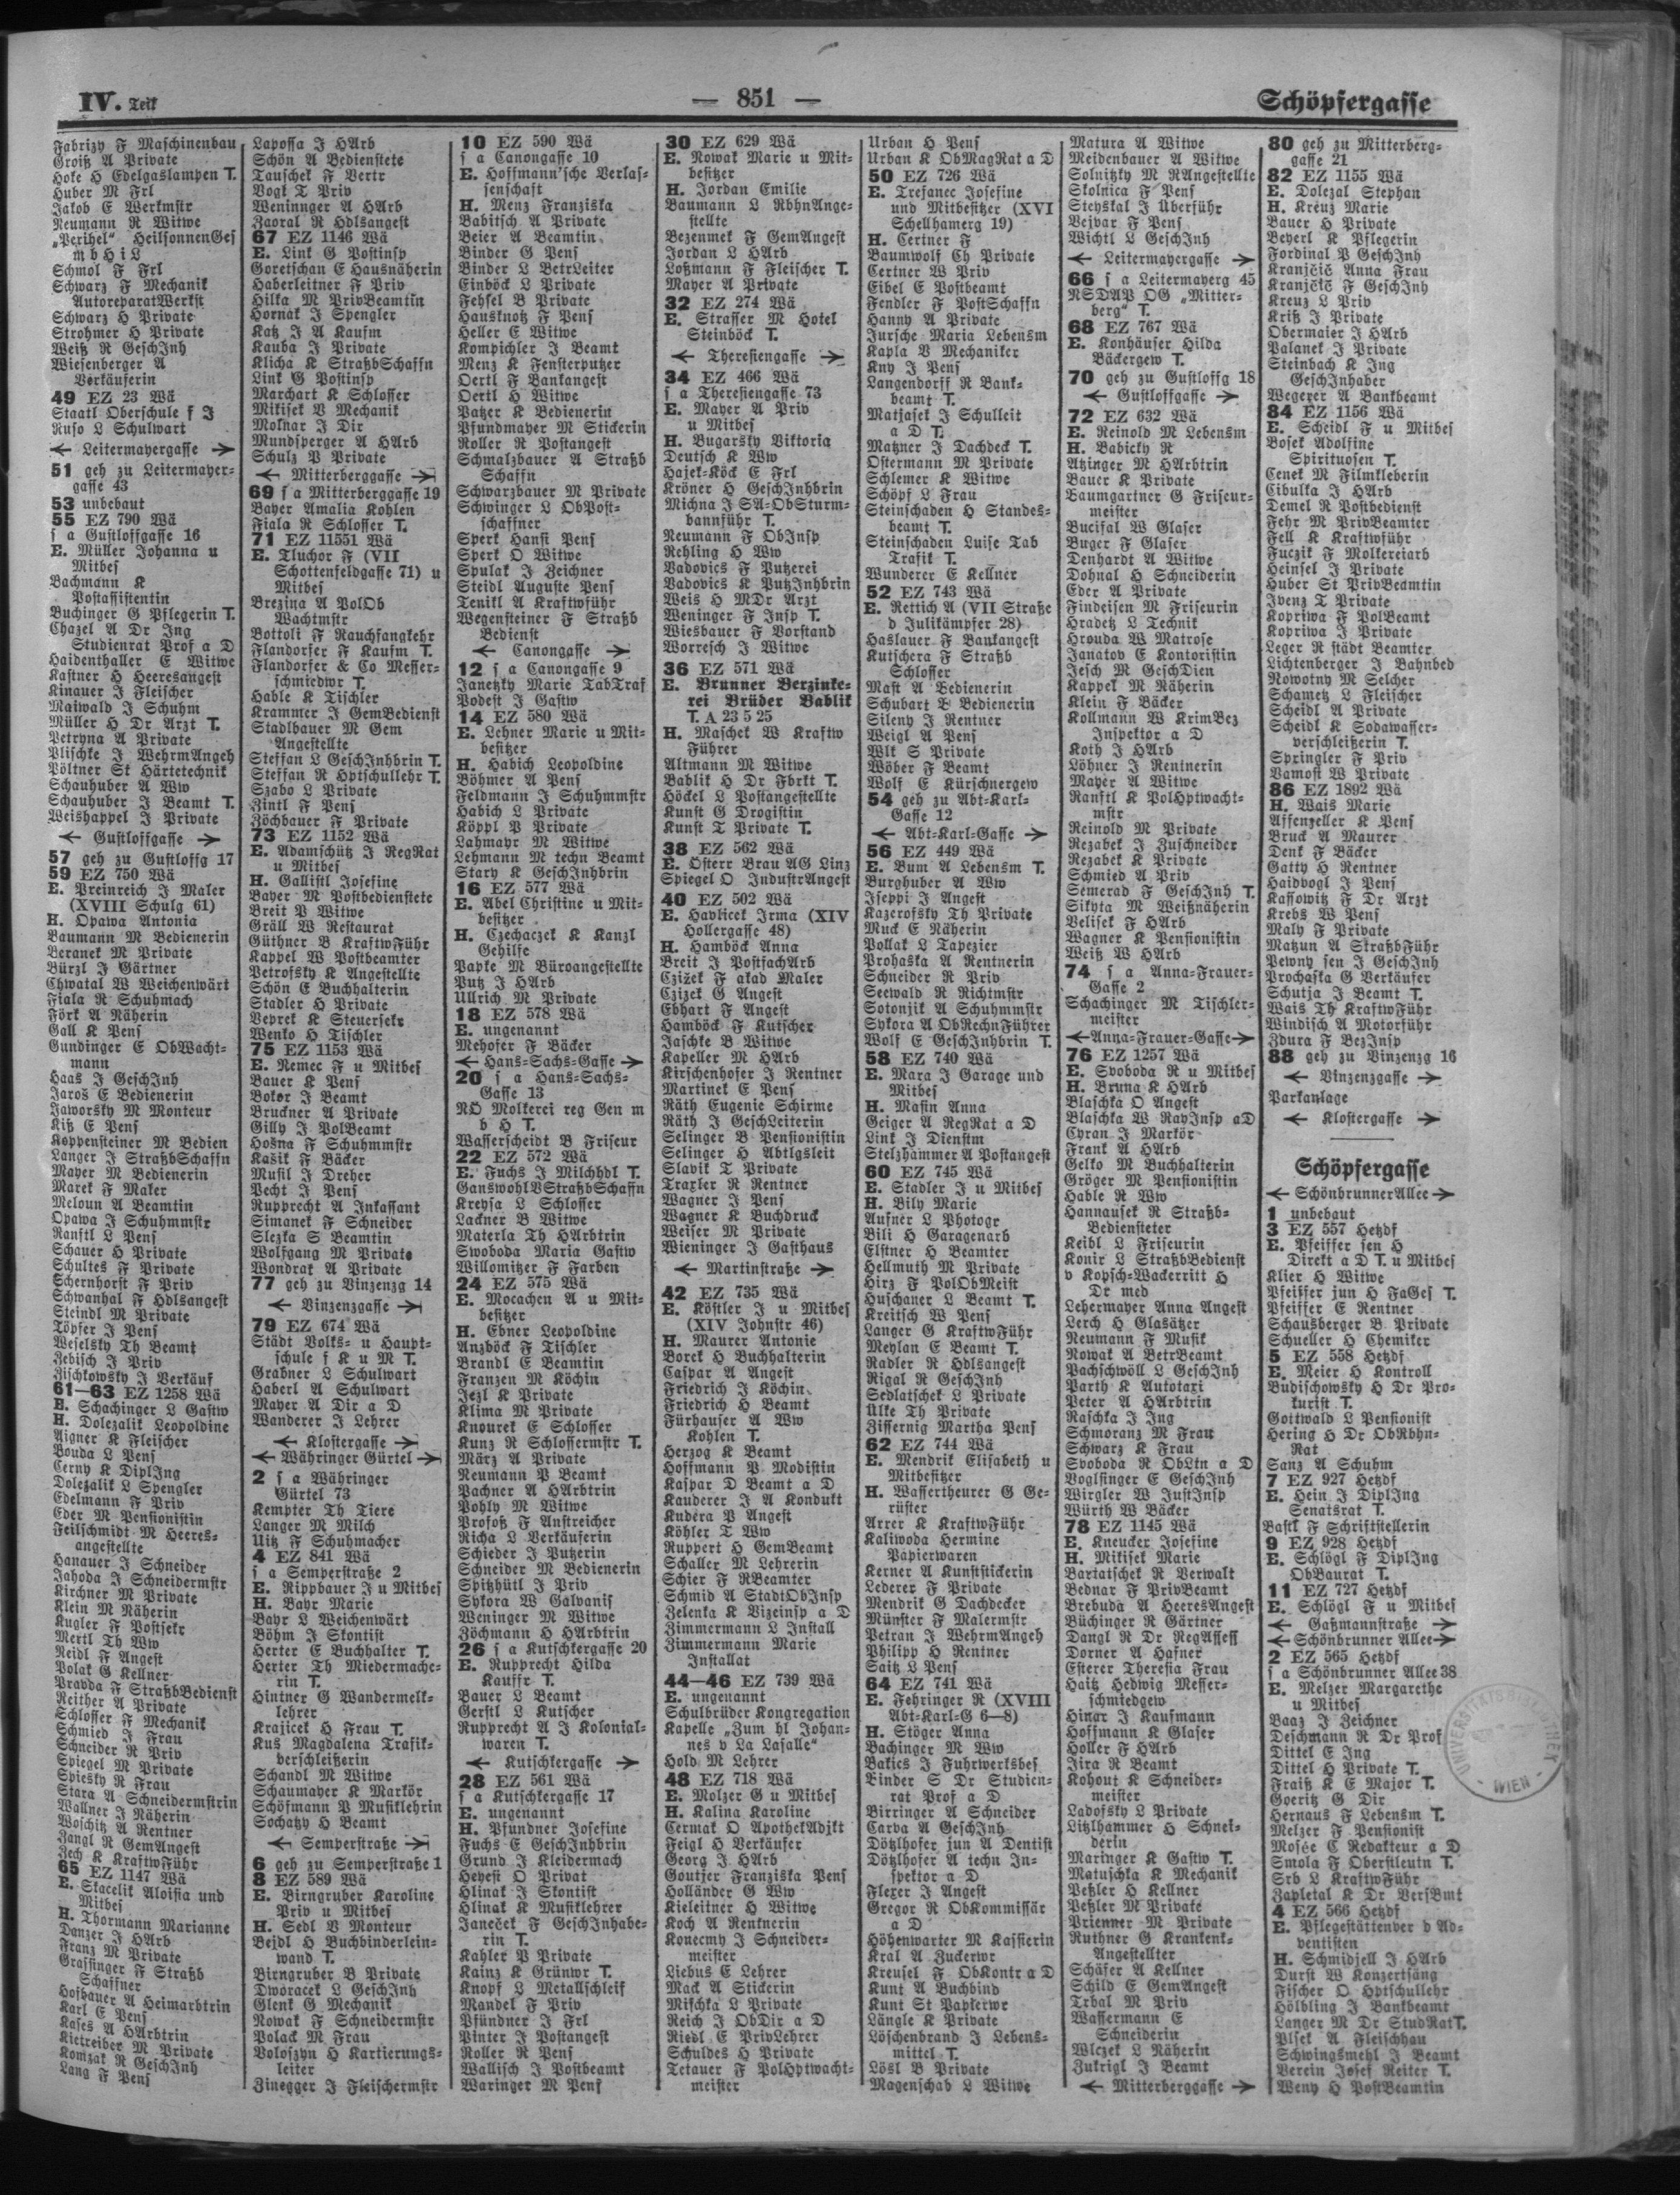 IV. Teil
— 851 —
Schöpfergasse
Fabrizy F Maschinenbau
Groiß A Private
Hoke H Edelgaslampen T.
Huber M Frl
Jakob E Werkmstr
Neumann R Witwe
„Perihel“ HeilsonnenGes
m b H i L
Schmol F Frl
Schwarz F Mechanik
AutoreparatWerkst
Schwarz H Private
Strohmer H Private
Weiß R GeschInh
Wiesenberger A
Verkäuferin
49 EZ 23 Wä
Staatl Oberschule f J
Ruso L Schulwart
← Leitermayergasse →
51 geh zu Leitermayer-
gasse 43
53 unbebaut
55 EZ 790 Wä
s a Gustloffgasse 16
E. Müller Johanna u
Mitbes
Bachmann K
Postassistentin
Buchinger G Pflegerin T.
Chazel A Dr Ing
Studienrat Prof a D
Haidenthaller E Witwe
Kastner H Heeresangest
Kinauer J Fleischer
Maiwald J Schuhm
Müller H Dr Arzt T.
Petryna A Private
Plischke J WehrmAngeh
Pöltner St Härtetechnik
Schauhuber A Ww
Schauhuber J Beamt T.
Weishappel J Private
← Gustloffgasse →
57 geh zu Gustloffg 17
59 EZ 750 Wä
E. Preinreich J Maler
(XVIII Schulg 61)
H. Opawa Antonia
Baumann M Bedienerin
Beranek M Private
Bürzl J Gärtner
Chwatal W Weichenwärt
Fiala R Schuhmach
Förk A Näherin
Gall K Pens
Gundinger E ObWacht-
mann
Haas J GeschInh
Jaroš E Bedienerin
Jaworsky M Monteur
Kiß E Pens
Koppensteiner M Bedien
Langer J StraßbSchaffn
Mayer M Bedienerin
Marek F Maler
Meloun A Beamtin
Opawa J Schuhmmstr
Ranftl L Pens
Schauer H Private
Schultes F Private
Schernhorst F Priv
Schwanhal F Hdlsangest
Steindl M Private
Töpfer J Pens
Weselsky Th Beamt
Zebisch J Priv
Zischkowsky J Verkäuf
61—63 EZ 1258 Wä
E. Schachinger L Gastw
H. Dolezalik Leopoldine
Aigner K Fleischer
Bouda L Pens
Cerny K DiplIng
Dolezalik L Spengler
Edelmann F Priv
Eder M Pensionistin
Feilschmidt M Heeres-
angestellte
Hanauer J Schneider
Jahoda J Schneidermstr
Kirchner M Private
Klein M Näherin
Kugler F Postsekr
Mertl Th Ww
Neidl F Angest
Polak G Kellner
Pravda F StraßbBedienst
Reither A Private
Schlosser F Mechanik
Schmied J Frau
Schneider R Priv
Spiegel M Private
Spiesky R Frau
Stara A Schneidermstrin
Wallner J Näherin
Woschitz A Rentner
Zangl R GemAngest
Zech K KraftwFühr
65 EZ 1147 Wä
E. Skacelik Aloisia und
Mitbes
H. Thormann Marianne
Danzer J HArb
Franz M Private
Grassinger F Straßb
Schaffner
Hofbauer A Heimarbtrin
Karl E Pens
Kases A HArbtrin
Kietreiber M Private
Komzak R GeschInh
Lang F Pens
Lapossa J HArb
Schön A Bedienstete
Tauschek F Vertr
Vogl T Priv
Weninnger A HArb
Zaoral R Hdlsangest
67 EZ 1146 Wä
E. Link G Postinsp
Goretschan E Hausnäherin
Haberleitner F Priv
Hilka M PrivBeamtin
Hornak J Spengler
Katz J A Kaufm
Kauba J Private
Klicha K StraßbSchaffn
Link G Postinsp
Marchart K Schlosser
Mikisek V Mechanik
Molnar J Dir
Mundsperger A HArb
Schulz P Private
← Mitterberggasse →
69 s a Mitterberggasse 19
Bayer Amalia Kohlen
Fiala R Schlosser T.
71 EZ 11551 Wä
E. Tluchor F (VII
Schottenfeldgasse 71) u
Mitbes
Brezina A PolOb
Wachtmstr
Bottoli F Rauchfangkehr
Flandorfer F Kaufm T.
Flandorfer & Co Messer-
schmiedwr T.
Hable K Tischler
Krammer J GemBedienst
Stadlbauer M Gem
Angestellte
Steffan L GeschInhbrin T.
Steffan R Hptschullehr T.
Szabo L Private
Zintl F Pens
Zöchbauer F Private
73 EZ 1152 Wä
E. Adamschütz J RegRat
u Mitbes
H. Gallistl Josefine
Bayer M Postbedienstete
Breit P Witwe
Gräll W Restaurat
Güthner B KraftwFühr
Kappel W Postbeamter
Petrofsky K Angestellte
Schön E Buchhalterin
Stadler H Private
Veprek K Steuersekr
Wenko H Tischler
75 EZ 1153 Wä
E. Nemec F u Mitbes
Bauer K Pens
Bokor J Beamt
Bruckner A Private
Gilly J PolBeamt
Hosna F Schuhmmstr
Kasik F Bäcker
Musil J Dreher
Pecht J Pens
Rupprecht A Inkassant
Simanek F Schneider
Slezka S Beamtin
Wolfgang M Private
Wondrak A Private
77 geh zu Vinzenzg 14
← Vinzenzgasse →
79 EZ 674 Wä
Städt Volks- u Haupt-
schule f K u M T.
Grabner L Schulwart
Haberl A Schulwart
Mayer A Dir a D
Wanderer J Lehrer
← Klostergasse →
← Währinger Gürtel →
2 s a Währinger
Gürtel 73
Kempter Th Tiere
Langer M Milch
Uitz F Schuhmacher
4 EZ 841 Wä
s a Semperstraße 2
E. Rippbauer J u Mitbes
H. Bayr Marie
Bayr L Weichenwärt
Böhm J Skontist
Herter E Buchhalter T.
Herter Th Miedermache-
rin T.
Hintner G Wandermelk-
lehrer
Krajicek H Frau T.
Kus Magdalena Trafik-
verschleißerin
Schandl M Witwe
Schaumayer K Markör
Schöfmann P Musiklehrin
Sochatzy H Beamt
← Semperstraße →
6 geh zu Semperstraße 1
8 EZ 589 Wä
E. Birngruber Karoline
Priv u Mitbes
H. Sedl V Monteur
Beidl H Buchbinderlein-
wand T.
Birngruber B Private
Dworacek L GeschInh
Glenk G Mechanik
Nowak F Schneidermstr
Polack M Frau
Voloszyn H Kartierungs-
leiter
Zinegger J Fleischermstr
10 EZ 590 Wä
s a Canongasse 10
E. Hoffmann'sche Verlas-
senschaft
H. Menz Franziska
Babitsch A Private
Beier A Beamtin
Binder G Pens
Binder L BetrLeiter
Einböck L Private
Fehsel B Private
Hausknotz F Pens
Heller E Witwe
Kompichler J Beamt
Menz K Fensterputzer
Oertl F Bankangest
Oertl H Witwe
Patzer K Bedienerin
Pfundmayer M Stickerin
Roller R Postangest
Schmalzbauer A Straßb
Schaffn
Schwarzbauer M Private
Schwinger L ObPost-
schaffner
Sperk Hansi Pens
Sperk O Witwe
Spulak J Zeichner
Steidl Auguste Pens
Tenikl A Kraftwführ
Wegensteiner F Straßb
Bedienst
← Canongasse →
12 s a Canongasse 9
Janetzky Marie TabTraf
Podest J Gastw
14 EZ 580 Wä
E. Lehner Marie u Mit-
besitzer
H. Habich Leopoldine
Böhmer A Pens
Feldmann J Schuhmmstr
Habich L Private
Köppl P Private
Lahmayr M Witwe
Lehmann M techn Beamt
Stary K GeschInhbrin
16 EZ 577 Wä
E. Abel Christine u Mit-
besitzer
H. Czechaczek K Kanzl
Gehilfe
Papke M Büroangestellte
Putz J HArb
Ullrich M Private
18 EZ 578 Wä
E. ungenannt
Mehofer F Bäcker
← Hans-Sachs-Gasse →
20 s a Hans-Sachs-
Gasse 13
NÖ Molkerei reg Gen m
b H T.
Wasserscheidt B Friseur
22 EZ 572 Wä
E. Fuchs J Milchhdl T.
GanswohlVStraßbSchaffn
Kreysa L Schlosser
Lackner B Witwe
Materla Th HArbtrin
Swoboda Maria Gastw
Willomitzer F Farben
24 EZ 575 Wä
E. Mocachen A u Mit-
besitzer
H. Ebner Leopoldine
Anzböck F Tischler
Brandl E Beamtin
Franzen M Köchin
Jezl K Private
Klima M Private
Knourek E Schlosser
Kunz R Schlossermstr T.
März A Private
Neumann P Beamt
Pachner A HArbtrin
Pohly M Witwe
Prosoß F Anstreicher
Richa L Verkäuferin
Schieder J Putzerin
Schneider M Bedienerin
Spitzhütl J Priv
Sykora W Galvanis
Weninger M Witwe
Zöchmann H HArbtrin
26 s a Kutschkergasse 20
E. Rupprecht Hilda
Kauffr T.
Bauer L Beamt
Gerstl L Kutscher
Rupprecht A J Kolonial-
waren T.
← Kutschkergasse →
28 EZ 561 Wä
s a Kutschkergasse 17
E. ungenannt
H. Pfundner Josefine
Fuchs E GeschInhbrin
Grund J Kleidermach
Heyest O Privat
Hlinak J Skontist
Hlinak K Musiklehrer
Janeček F GeschInhabe-
rin T.
Kahler P Private
Kainz K Grünwr T.
Knopf L Metallschleif
Mandel F Priv
Pfündner J Frl
Pinter J Postangest
Roller R Pens
Wallisch J Postbeamt
Waringer M Pens
30 EZ 629 Wä
E. Nowak Marie u Mit-
besitzer
H. Jordan Emilie
Baumann L RbhnAnge-
stellte
Bezenmek F GemAngest
Jordan L HArb
Loßmann F Fleischer T.
Mayer A Private
32 EZ 274 Wä
E. Strasser M Hotel
Steinböck T.
← Theresiengasse →
34 EZ 466 Wä
s a Theresiengasse 73
E. Mayer A Priv
u Mitbes
H. Bugarsky Viktoria
Deutsch K Ww
Hajek-Köck E Frl
Kröner H GeschInhbrin
Michna J SA-ObSturm-
bannführ T.
Neumann F ObInsp
Rehling H Ww
Vadovics F Putzerei
Vadovics K PutzInhbrin
Weis H MDr Arzt
Weninger F Insp T.
Wiesbauer F Vorstand
Worresch J Witwe
36 EZ 571 Wä
E. Brunner Verzinke-
rei Brüder Bablik
T. A 23 5 25
H. Maschek W Kraftw
Führer
Altmann M Witwe
Bablik H Dr Fbrkt T.
Höckel L Postangestellte
Kunst G Drogistin
Kunst T Private T.
38 EZ 562 Wä
E. Österr Brau AG Linz
Spiegel O IndustrAngest
40 EZ 502 Wä
E. Havlicek Irma (XIV
Hollergasse 48)
H. Hamböck Anna
Breit J PostfachArb
Czižek F akad Maler
Czizek G Angest
Ebhart F Angest
Hamböck F Kutscher
Jaschke B Witwe
Kapeller M HArb
Kirschenhofer J Rentner
Martinek E Pens
Räth Eugenie Schirme
Räth J GeschLeiterin
Selinger B Pensionistin
Selinger H Abtlgsleit
Slavik T Private
Traxler R Rentner
Wagner J Pens
Wagner K Buchdruck
Weiser M Private
Wieninger J Gasthaus
← Martinstraße →
42 EZ 735 Wä
E. Köstler J u Mitbes
(XIV Johnstr 46)
H. Maurer Antonie
Borek H Buchhalterin
Caspar A Angest
Friedrich J Köchin
Friedrich H Beamt
Fürhauser A Ww
Kohlen T.
Herzog K Beamt
Hoffmann P Modistin
Kaspar D Beamt a D
Kauderer J A Kondukt
Kudera P Angest
Köhler T Ww
Ruppert H GemBeamt
Schaller M Lehrerin
Schier F RBeamter
Schmid A StadtObInsp
Zelenka K Vizeinsp a D
Zimmermann L Install
Zimmermann Marie
Installat
44—46 EZ 739 Wä
E. ungenannt
Schulbrüder Kongregation
Kapelle „Zum hl Johan-
nes v La Lasalle“
Hold M Lehrer
48 EZ 718 Wä
E. Molzer G u Mitbes
H. Kalina Karoline
Cermak O ApothekAdjkt
Feigl H Verkäufer
Georg J HArb
Goutjer Franziska Pens
Holländer G Ww
Kieleitner H Witwe
Koch A Rentnerin
Konecmy J Schneider-
meister
Liebus E Lehrer
Mack A Stickerin
Mischka L Private
Reich J ObDir a D
Riedl E PrivLehrer
Schuldes H Private
Tetauer F PolHptwacht-
meister
Urban H Pens
Urban K ObMagRat a D
50 EZ 726 Wä
E. Tresanec Josefine
und Mitbesitzer (XVI
Schellhamerg 19)
H. Certner F
Baumwolf Ch Private
Certner W Priv
Eibel E Postbeamt
Fendler F PostSchaffn
Hanny A Private
Jursche Maria Lebensm
Kapla V Mechaniker
Kny J Pens
Langendorff R Bank-
beamt T.
Matjasek J Schulleit
a D T.
Matzner J Dachdeck T.
Ostermann M Private
Schlemer K Witwe
Schöpf L Frau
Steinschaden H Standes-
beamt T.
Steinschaden Luise Tab
Trafik T.
Wunderer E Kellner
52 EZ 743 Wä
E. Rettich A (VII Straße
d Julikämpfer 28)
Haslauer F Bankangest
Kutschera F Straßb
Schlosser
Mast A Bedienerin
Schubart B Bedienerin
Sileny J Rentner
Weigl A Pens
Wlk S Private
Wöber F Beamt
Wolf E Kürschnergew
54 geh zu Abt-Karl-
Gasse 12
← Abt-Karl-Gasse →
56 EZ 449 Wä
E. Bum A Lebensm T.
Burghuber A Ww
Iseppi J Angest
Kazerofsky Th Private
Muck E Näherin
Pollak L Tapezier
Prohaska A Rentnerin
Schneider R Priv
Seewald R Richtmstr
Sotonjik A Schuhmmstr
Sykora A ObRechnFührer
Wolf E GeschInhbrin T.
58 EZ 740 Wä
E. Mara J Garage und
Mitbes
H. Masin Anna
Geiger A RegRat a D
Link J Dienstm
Stelzhammer A Postangest
60 EZ 745 Wä
E. Stadler J u Mitbes
H. Bily Marie
Aufner L Photogr
Bili H Garagenarb
Elstner H Beamter
Hellmuth M Private
Hirz F PolObMeist
Huschauer L Beamt T.
Kreitsch W Pens
Langer G KraftwFühr
Meylan E Beamt T.
Radler R Hdlsangest
Rigal R GeschInh
Sedlatschek L Private
Ulke Th Private
Ziffernig Martha Pens
62 EZ 744 Wä
E. Mendrik Elisabeth u
Mitbesitzer
H. Wassertheurer G Ge-
rüster
Arrer K KraftwFühr
Kaliwoda Hermine
Papierwaren
Kerner A Kunststickerin
Lederer F Private
Mendrik G Dachdecker
Münster F Malermstr
Petran J WehrmAngeh
Philipp H Rentner
Saitz L Pens
64 EZ 741 Wä
E. Fehringer R (XVIII
Abt-Karl-G 6—8)
H. Stöger Anna
Bachinger M Ww
Bakics J Fuhrwerksbes
Binder S Dr Studien-
rat Prof a D
Birringer A Schneider
Carda A GeschInh
Dötzlhofer jun A Dentist
Dötzlhofer A techn In-
spektor a D
Flexer J Angest
Gregor R ObKommissär
a D
Höhenwarter M Kassierin
Kral A Zuckerwr
Kreusel F ObKontr a D
Kunt A Buchbind
Kunt St Papierwr
Längle K Private
Löschenbrand J Lebens-
mittel T.
Lösl B Private
Magenschab L Witwe
Matura A Witwe
Meidenbauer A Witwe
Solnitzky M RAngestellte
Skolnica F Pens
Steyskal J Überführ
Vejvar F Pens
Wichtl L GeschInh
← Leitermayergasse →
66 s a Leitermayerg 45
NSDAP OG „Mitter-
berg“ T.
68 EZ 767 Wä
E. Konhäuser Hilda
Bäckergew T.
70 geh zu Gustloffg 18
← Gustloffgasse →
72 EZ 632 Wä
E. Reinold M Lebensm
H. Babicky R
Atzinger M HArbtrin
Bauer K Private
Baumgartner G Friseur-
meister
Bucifal W Glaser
Buger F Glaser
Denhardt A Witwe
Dohnal H Schneiderin
Eder A Private
Findeisen M Friseurin
Hradetz L Technik
Hrouda W Matrose
Janatov E Kontoristin
Jesch M GeschDien
Kappel M Näherin
Klein F Bäcker
Kollmann W KrimBez
Inspektor a D
Koth J HArb
Löhner J Rentnerin
Mayer A Witwe
Ranftl K PolHptwacht-
mstr
Reinold M Private
Rezabek J Zuschneider
Rezabek K Private
Schmied A Priv
Semerad F GeschInh T.
Sikyta M Weißnäherin
Velisek F HArb
Wagner K Pensionistin
Weiß W HArb
74 s a Anna-Frauer-
Gasse 2
Schachinger M Tischler-
meister
←Anna-Frauer-Gasse→
76 EZ 1257 Wä
E. Svoboda R u Mitbes
H. Bruna K HArb
Blaschka O Angest
Blaschka W RayInsp aD
Cyran J Markör
Frank A HArb
Gelko M Buchhalterin
Gröger M Pensionistin
Hable R Ww
Hannausek R Straßb-
Bediensteter
Keibl L Friseurin
Konir L StraßbBedienst
v Kopsch-Wackerritt H
Dr med
Lehermayer Anna Angest
Lerch H Glasätzer
Neumann F Musik
Nowak A BetrBeamt
Pachschwöll L GeschInh
Parth K Autotaxi
Peter A HArbtrin
Raschka J Ing
Schmoranz M Frau
Schwarz K Frau
Svoboda R ObLtn a D
Voglsinger E GeschInh
Wirgler W JustInsp
Würth W Bäcker
78 EZ 1145 Wä
E. Kneucker Josefine
H. Mikisek Marie
Bartatschek R Verwalt
Bednar F PrivBeamt
Brebuda A HeeresAngest
Büchinger R Gärtner
Dangl R Dr RegAssess
Dorner A Hafner
Esterer Theresia Frau
Haitz Hedwig Messer-
schmiedgew
Hinar J Kaufmann
Hoffmann K Glaser
Holler F HArb
Jira R Beamt
Kohout K Schneider-
meister
Ladofsky L Private
Litzlhammer H Schnei-
derin
Maringer K Gastw T.
Matuschka K Mechanik
Peßler H Kellner
Peßler M Private
Prienner M Private
Ruthner G Krankenk-
Angestellter
Schäfer A Kellner
Schild E GemAngest
Trbal M Priv
Wassermann E
Schneiderin
Wlczek L Näherin
Zukrigl J Beamt
← Mitterberggasse →
80 geh zu Mitterberg-
gasse 21
82 EZ 1155 Wä
E. Dolezal Stephan
H. Kreuz Marie
Bauer H Private
Beyerl K Pflegerin
Fordinal P GeschInh
Kranjčič Anna Frau
Kranjčič F GeschInh
Kreuz L Priv
Kriß J Private
Obermaier J HArb
Palanek J Private
Steinbach K Ing
GeschInhaber
Wegerer A Bankbeamt
84 EZ 1156 Wä
E. Scheidl F u Mitbes
Bosek Adolfine
Spirituosen T.
Cenek M Filmkleberin
Cibulka J HArb
Demel R Postbedienst
Fehr M PrivBeamter
Fell K Kraftwführ
Fuczik F Molkereiarb
Heinsel J Private
Huber St PrivBeamtin
Ivenz T Private
Kopriwa F PolBeamt
Kopriwa J Private
Leger R städt Beamter
Lichtenberger J Bahnbed
Nowotny M Selcher
Schametz L Fleischer
Scheidl A Private
Scheidl K Sodawasser-
verschleißerin T.
Springler F Priv
Vamosi W Private
86 EZ 1892 Wä
H. Wais Marie
Affenzeller K Pens
Bruck A Maurer
Denk F Bäcker
Gatty H Rentner
Haidvogl J Pens
Kassowitz F Dr Arzt
Krebs W Pens
Maly F Private
Matzun A StraßbFühr
Pewny sen J GeschInh
Prochaska G Verkäufer
Schutja J Beamt T.
Wais Th KraftwFühr
Windisch A Motorführ
Zdura F BezInsp
88 geh zu Vinzenzg 16
← Vinzenzgasse →
Parkanlage
← Klostergasse →
Schöpfergasse
← SchönbrunnerAllee →
1 unbebaut
3 EZ 557 Hetzdf
E. Pfeiffer sen H
Direkt a D T. u Mitbes
Klier H Witwe
Pfeiffer jun H FaGes T.
Pfeiffer E Rentner
Schausberger B Private
Schueller H Chemiker
5 EZ 558 Hetzdf
E. Meier H Kontroll
Budischowsky H Dr Pro-
kurist T.
Gottwald L Pensionist
Hering H Dr ObRbhn-
Rat
Sanz A Schuhm
7 EZ 927 Hetzdf
E. Hein J DiplIng
Senatsrat T.
Bastk F Schriftstellerin
9 EZ 928 Hetzdf
E. Schlögl F DiplIng
ObBaurat T.
11 EZ 727 Hetzdf
E. Schlögl F u Mitbes
← Gaßmannstraße →
← Schönbrunner Allee→
2 EZ 565 Hetzdf
s a Schönbrunner Allee 38
E. Melzer Margarethe
u Mitbes
Baaz J Zeichner
Deschmann R Dr Prof
Dittel E Ing
Dittel H Private T.
Fraiß K E Major T.
Goeritz G Dir
Hernaus F Lebensm T.
Melzer F Pensionist
Mosée C Redakteur a D
Smola F Oberstleutn T.
Srb L KraftwFühr
Zapletal K Dr VersBmt
4 EZ 566 Hetzdf
E. Pflegestättenver d Ad-
ventisten
H. Schmidjell J HArb
Durst W Konzertsäng
Fischer O Hptschullehr
Hölbling J Bankbeamt
Langer M Dr StudRatT.
Plsek A Fleischhau
Schwingsmehl J Beamt
Verein Josef Reiter T.
Weny H PostBeamtin
UNIVERSITÄTSBIBLIOTHEK
- WIEN -